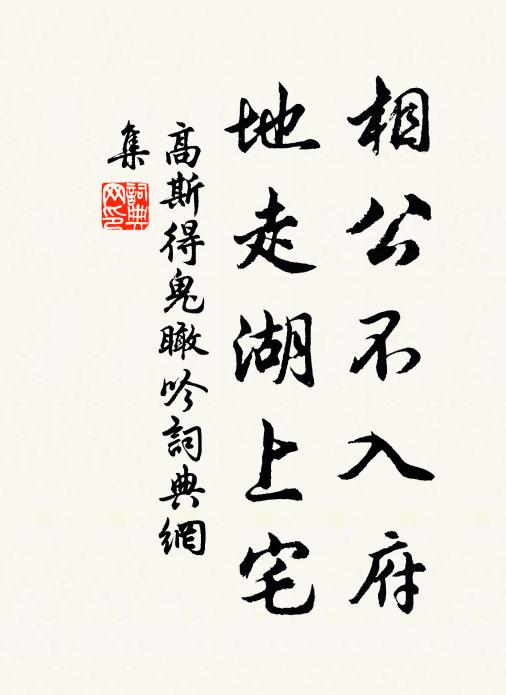 相公不入府
地走湖上宅
高斯得鬼瞰吟詞典網
集
詞典
网印